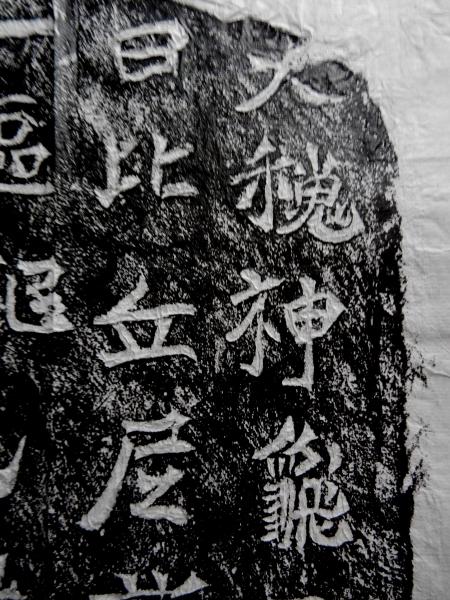 大魏神龜
日比丘尼
一區